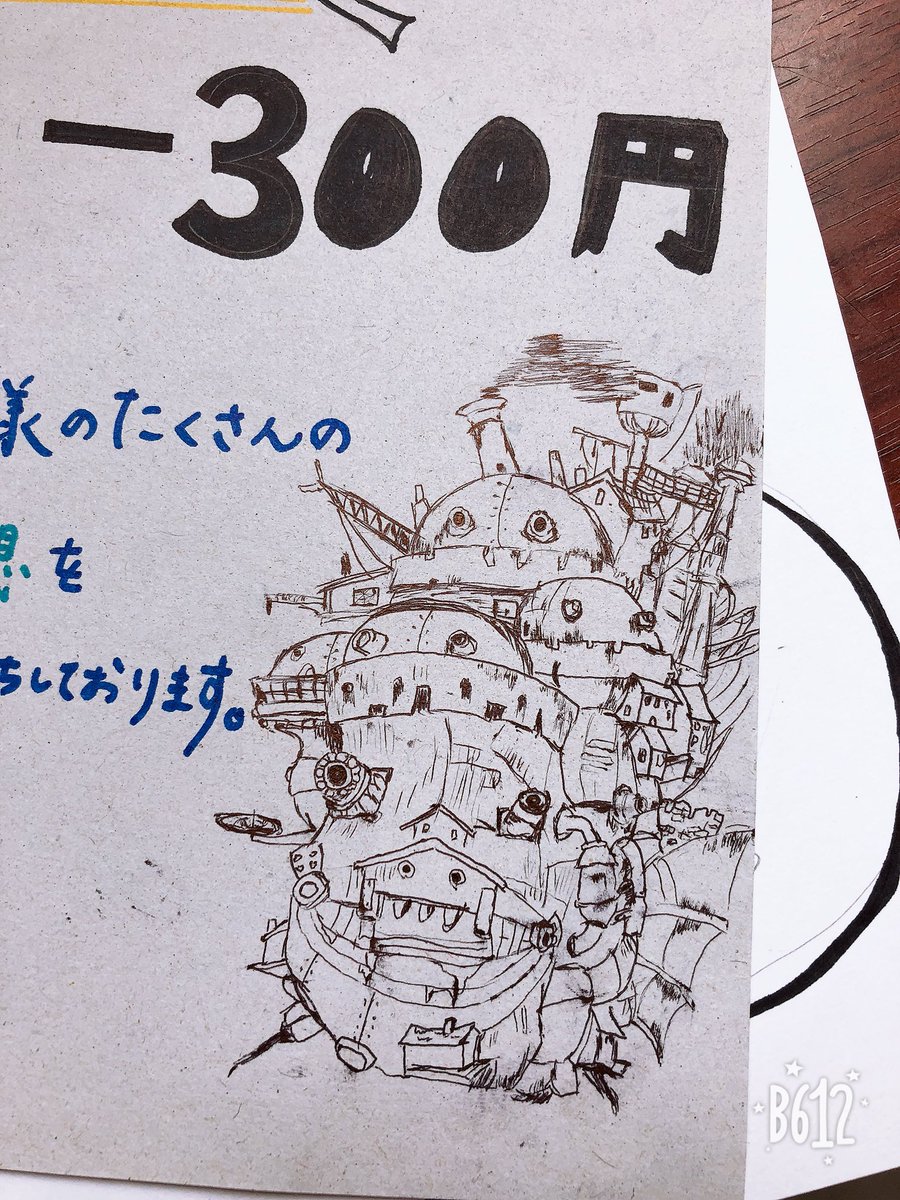 -300円
様のたくさんの
を
ちしております。
B612